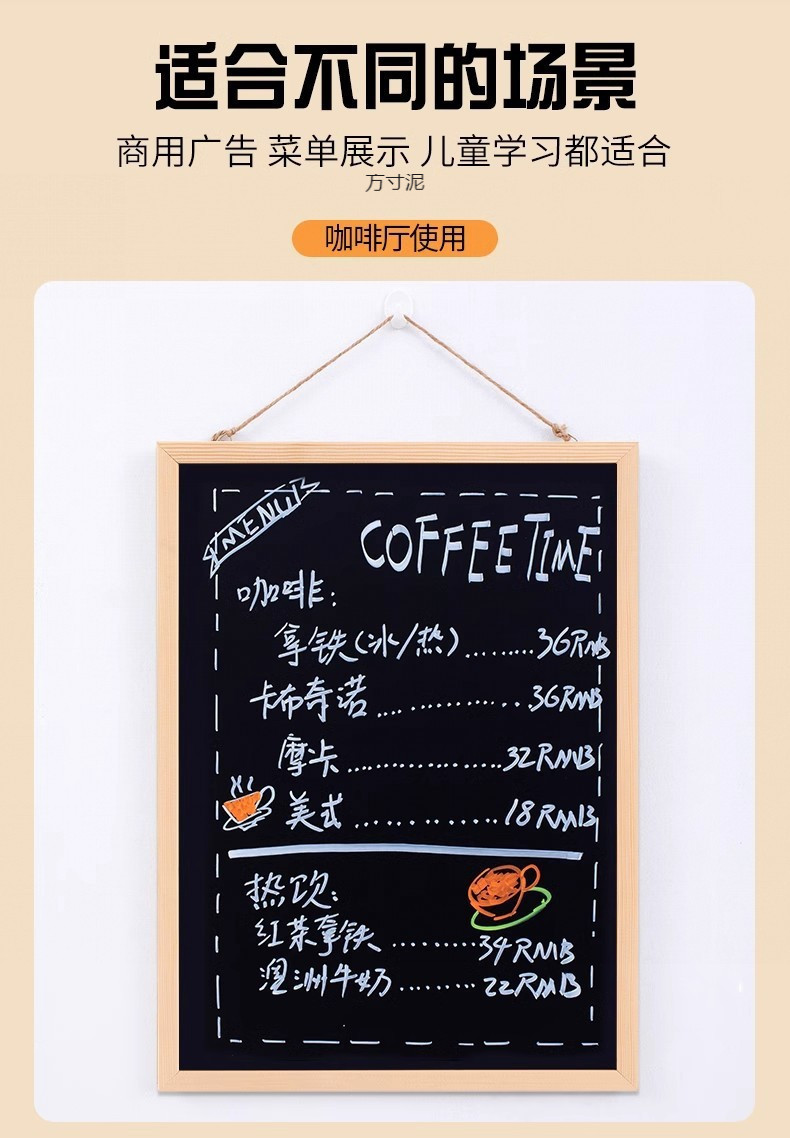 适合不同的场景
商用广告 菜单展示 儿童学习都适合
方寸泥
咖啡厅使用
MENU
COFFEE TIME
咖啡:
拿铁(冰/热).........36RMB
卡布奇诺..............36RMB
摩卡...................32RMB
美式..............18RMB
热饮:
红茶拿铁.........34RMB
澳洲牛奶.........22RMB